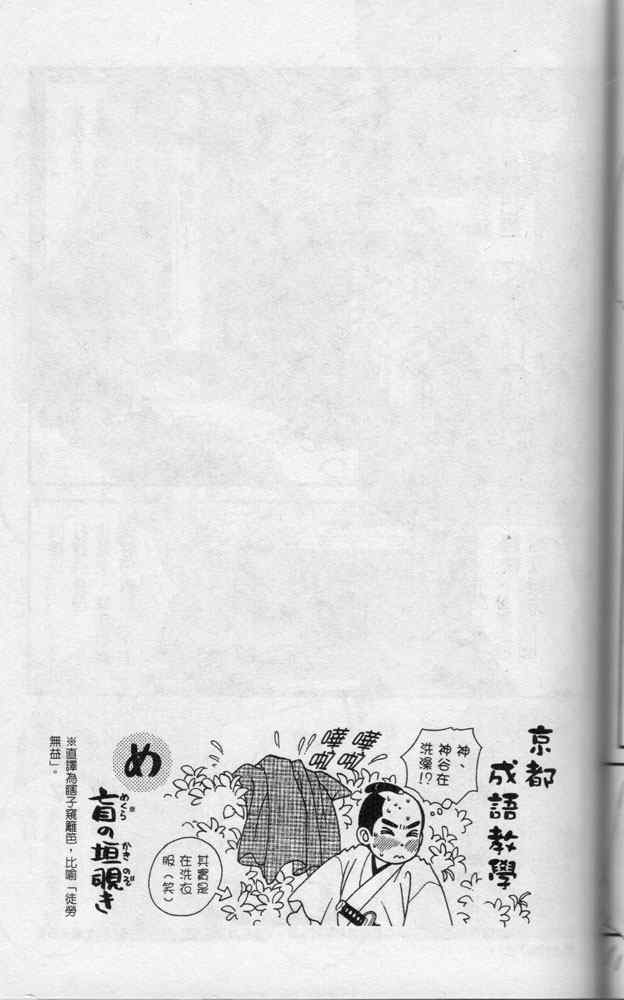 京都
成語教學
神、
神谷在
洗澡!?
嘩啦
嘩啦
其實是
在洗衣
服（笑）
め
盲の垣覗き
めくら
かき
のぞ
※直譯為瞎子窺籬笆，比喻「徒勞
無益」。